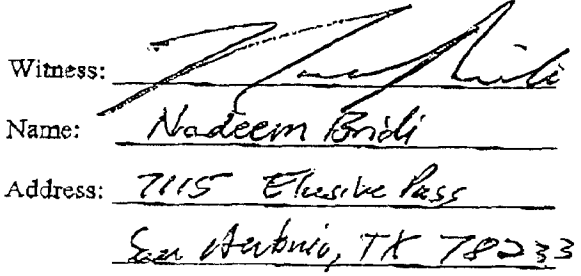 Witness:
Name: Nadeem Bridi
Address: 7115 Elusive Pass
San Antonio, TX 78233